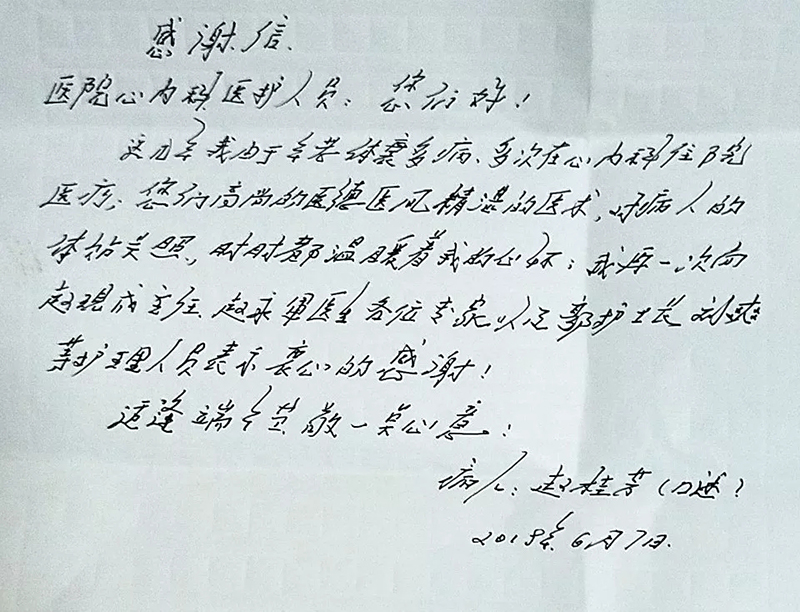 感谢信
医院心内科医护人员：您们好！
这几年我由于年老体衰多病、多次在心内科住院
医疗、您们高尚的医德医风精湛的医术，对病人的
体帖关照，时时都温暖着我的心怀；我再一次向
赵现成主任、赵永军医生各位专家以及郭护士长刘爽
等护理人员表示衷心的感谢！
适逢端午节敬一点心意！
病人：赵桂芳（口述）
2019年6月7日.